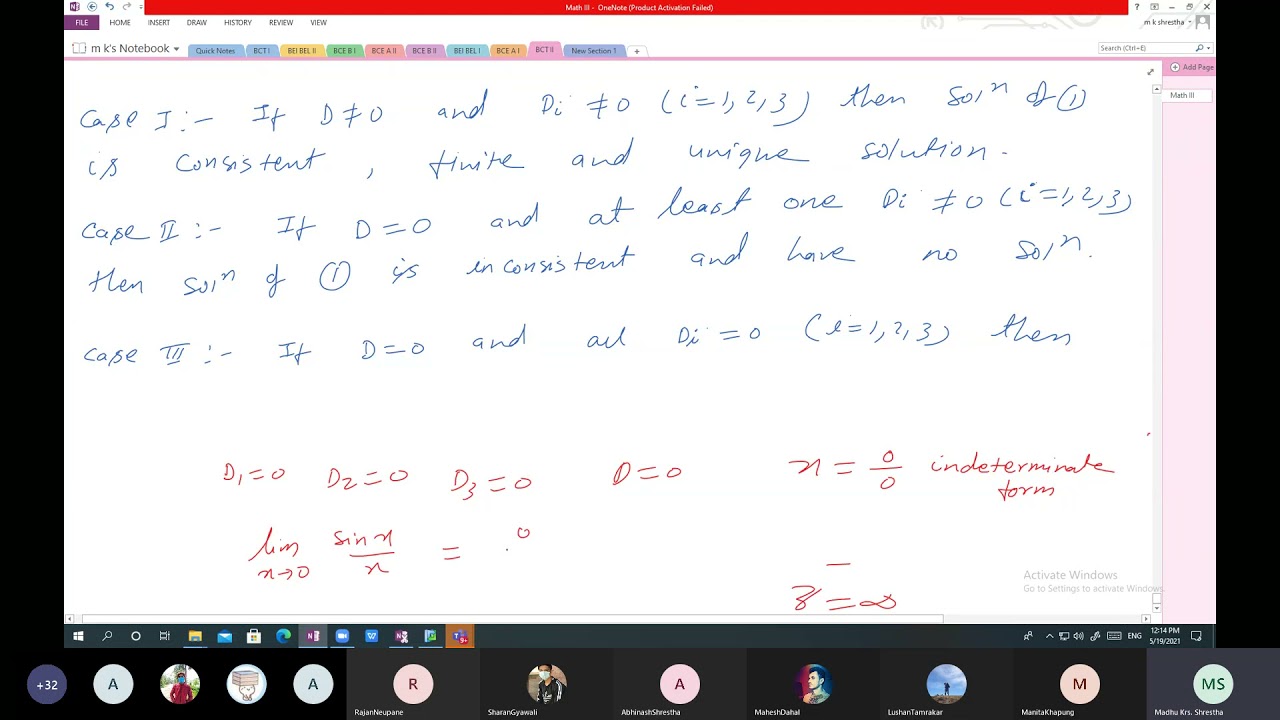 Math III - OneNote (Product Activation Failed)
m k shrestha
FILE HOME INSERT DRAW HISTORY REVIEW VIEW
m k's Notebook
Quick Notes BCT I BEI BEL II BCE B I BCE A II BCE B II BEI BEL I BCE A I BCT II New Section 1 +
Search (Ctrl+E)
Add Page
Math III
Case I :- If D ≠ 0 and Di ≠ 0 (i=1,2,3) then Solⁿ of ①
is Consistent, finite and unique solution.
Case II :- If D = 0 and at least one Di ≠ 0 (i=1,2,3)
then Solⁿ of ① is inconsistent and have no Solⁿ.
Case III :- If D = 0 and all Di = 0 (i=1,2,3) then
D₁ = 0 D₂ = 0 D₃ = 0 D = 0 x = 0/0 indeterminate
form
lim x→0 sin x / x = 0
z = ∞
Activate Windows
Go to Settings to activate Windows.
ENG
12:14 PM
5/19/2021
+32 A A R A M MS
RajanNeupane SharanGyawali AbhinashShrestha MaheshDahal LushanTamrakar ManitaKhapung Madhu Krs. Shrestha